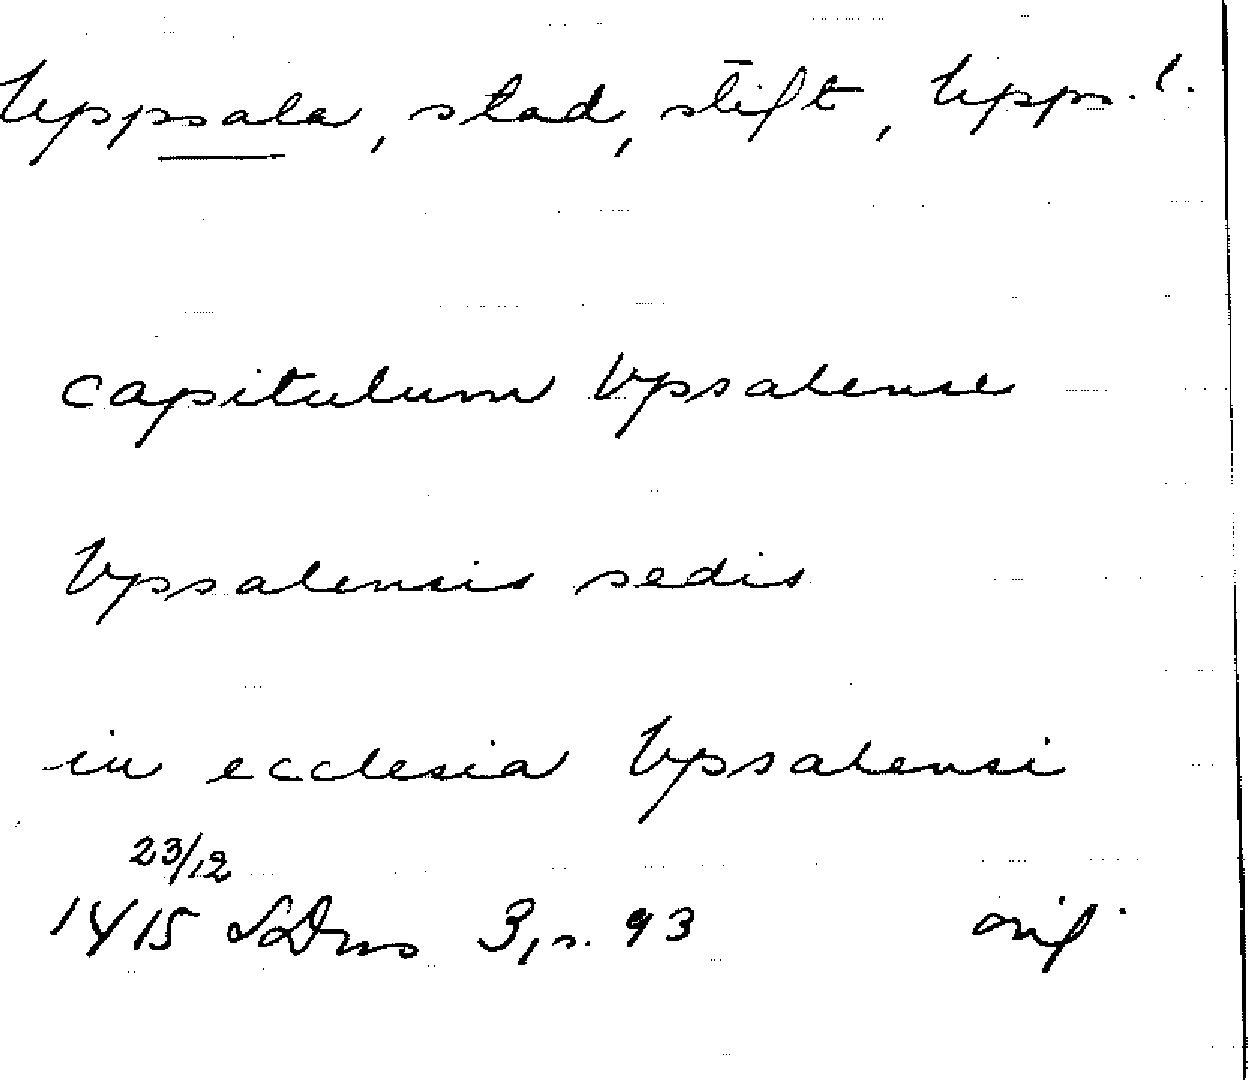 Uppsala, stad, stift, Upps. l.
capitulum Vpsalense
Vpsalensis sedis
in ecclesia Vpsalensi
23/12
1415 SDns 3, s. 93 orig.